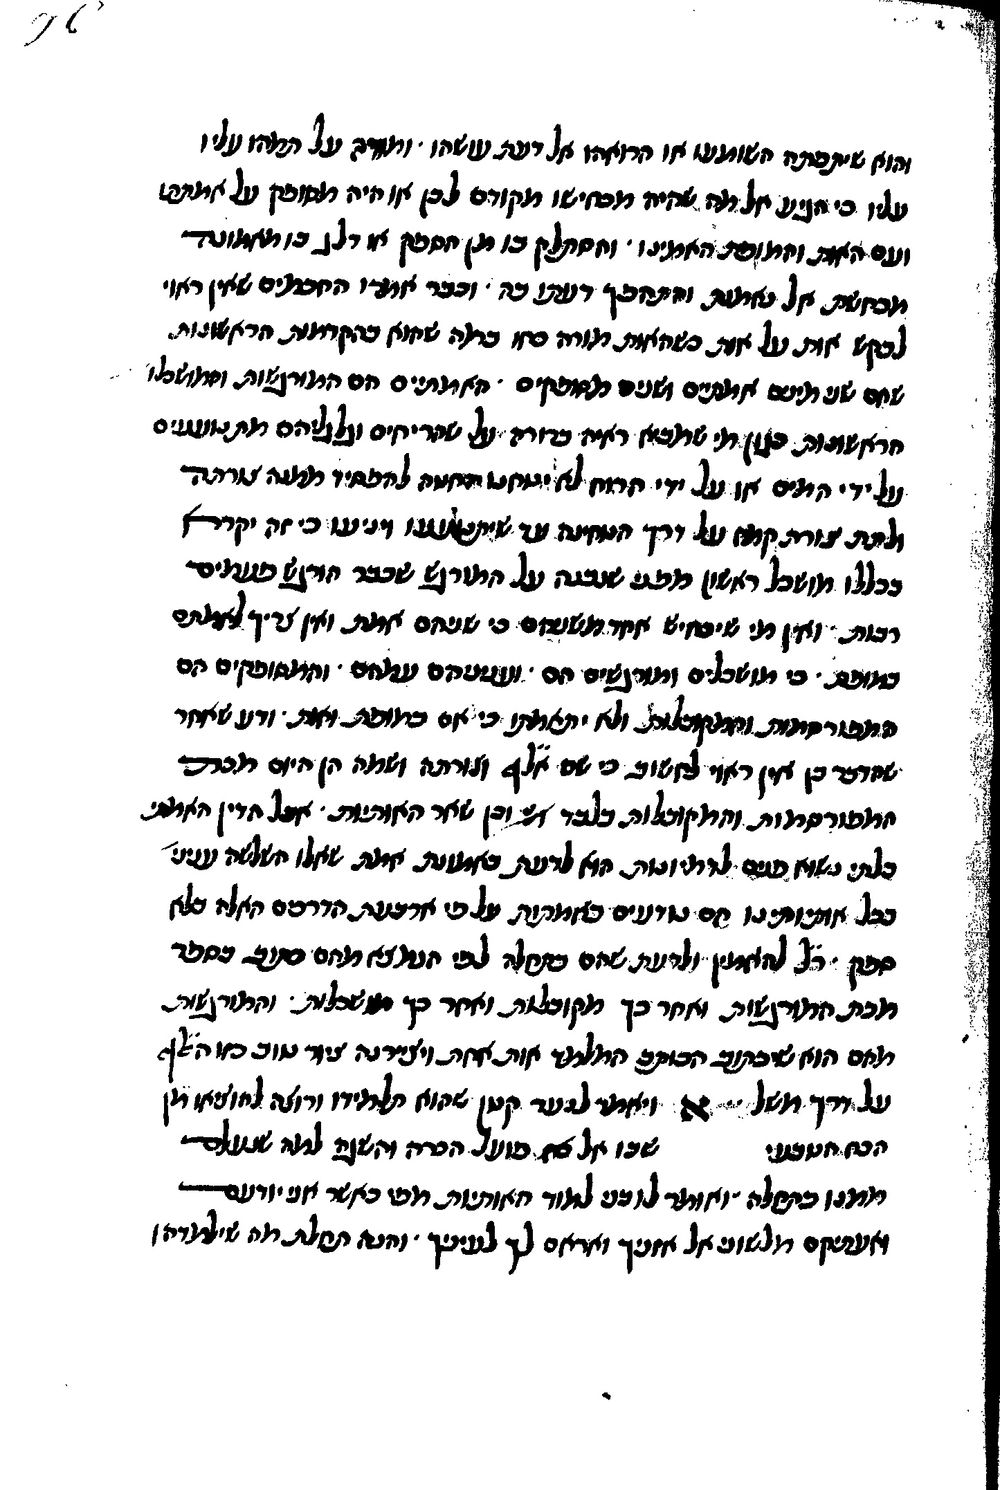 והוא שיתפתה השומעו או הרואהו אל דעת עושהו · ומורה על תמהו עליו
עליו כי הגיע אל מה שהיה מכחישו מקודם לכן או היה מסופק על אמתתו
ועם האות והמופת האמינו · והסתלק בו מן הספק או דלג בו מאמונה
מכחשת אל נאמנת והתהפך דעתו בה · וכבר אמרו החכמים שאין ראוי
לבקש אות על אות כשהאות מורה סוד במה שהוא כהקדמות הראשונות
שהם שני מינים אמתיים ושנים מסופקים · האמתיים הם המורגשות והמושכלות
הראשונות כגון מי שמביא ראיה ברורה על שהריחיים וגלגליהם מתנועעים
על ידי המים או על ידי הרוח לא יטחנו החטה להפסיד ממנה צורתה
ולתת צורת קמח על דרך הטחינה עד שיתנועעו ויניעו כי זה יקרא
בכללו מושכל ראשון מפני שנבנה על המורגש שכבר הורגש פעמים
רבות · ואין מי שיכחיש אחד משניהם כי שניהם אמת ואין צריך לאמתם
במופת · כי מושכלים ומורגשים הם · ועניניהם עמהם · והמסופקים הם
המפורסמות והמקובלות ולא יתאמתו כי אם במופת ואות · ודע שאחר
שהדבר כן אין ראוי לחשוב כי שם אלף וצורתה ושמה הן היום מכת
המפורסמות והמקובלות בלבד וכן שאר האותיות · אבל הדין האמתי
בלתי נשוא פנים לדמיונות הוא לדעת באמונת אמת שאלו השלשה עניני
בכל אותיותינו הם נודעים באמתות על פי ארבעת הדרכים האלה בלא
ספק · ר"ל להאמין ולדעת שהם בתחלה לפי הנמצא מהם כתוב בספר
מכת המורגשות ואחר כך מקובלות ואחר כך מושכלות · והמורגשות
מהם הוא שיכתוב הכותב המלמד אות אחת ויציירנה ציור טוב כמו האלף
על דרך משל א ויאמר לנער קטן שהוא תלמידו ורוצה להוציאו מן
הכח הטבעי שבו אל פועל הכרה והשגה למה שנעלם
ממנו בתחלה · ואומר לו בני למוד האותיות מפי כאשר אני יודעם
ואעתיקם מלשוני אל אזניך ואראם לך לעיניך · והנה תחלת מה שילמדהו